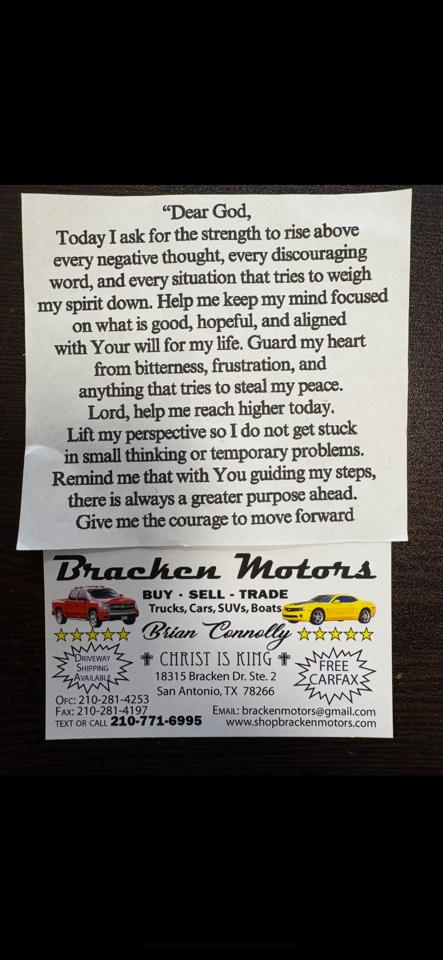 “Dear God,
Today I ask for the strength to rise above
every negative thought, every discouraging
word, and every situation that tries to weigh
my spirit down. Help me keep my mind focused
on what is good, hopeful, and aligned
with Your will for my life. Guard my heart
from bitterness, frustration, and
anything that tries to steal my peace.
Lord, help me reach higher today.
Lift my perspective so I do not get stuck
in small thinking or temporary problems.
Remind me that with You guiding my steps,
there is always a greater purpose ahead.
Give me the courage to move forward
Bracken Motors
BUY · SELL · TRADE
Trucks, Cars, SUVs, Boats
Brian Connolly
DRIVEWAY
SHIPPING
AVAILABLE
CHRIST IS KING
18315 Bracken Dr. Ste. 2
San Antonio, TX 78266
FREE
CARFAX
OFC: 210-281-4253
FAX: 210-281-4197
TEXT OR CALL 210-771-6995
EMAIL: brackenmotors@gmail.com
www.shopbrackenmotors.com